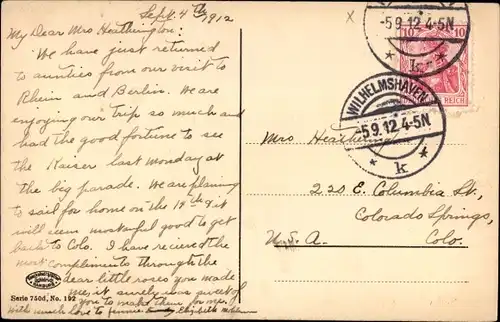 Sept. 4th 1912
My Dear Mrs Heathington:
We have just returned
to aunties from our visit to
Rhein and Berlin. We are
enjoying our trip so much and
had the good fortune to see
the Kaiser last Monday at
the big parade. We are planing
to sail for home on the 19th & it
will seem most awful good to get
back to Colo. I have recieved the
most compliments through the
dear little roses you made
me, it surely was sweet of
you to make them for me.
with much love to Elizabeth
Serie 750d, No. 192
-5.9.12.4-5N
* k *
10 10
REICH
WILHELMSHAVEN
-5.9.12.4-5N
* k *
Mrs
220 E. Columbia St.,
Colorado Springs,
U.S.A. Colo.